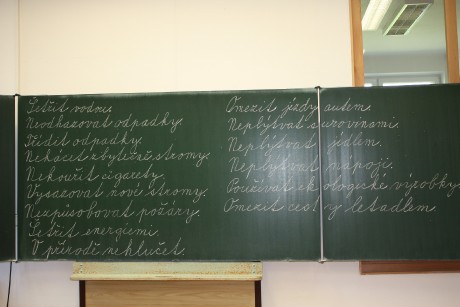 Šetřit vodou.
Neodhazovat odpadky.
Třídit odpadky.
Nekácet zbytečně stromy.
Nekouřit cigarety.
Vysazovat nové stromy.
Nezpůsobovat požáry.
Šetřit energiemi.
V přírodě neklučet.
Omezit jízdy autem.
Neplýtvat surovinami.
Neplýtvat jídlem.
Neplýtvat nápoji.
Používat ekologické výrobky.
Omezit cesty letadlem.